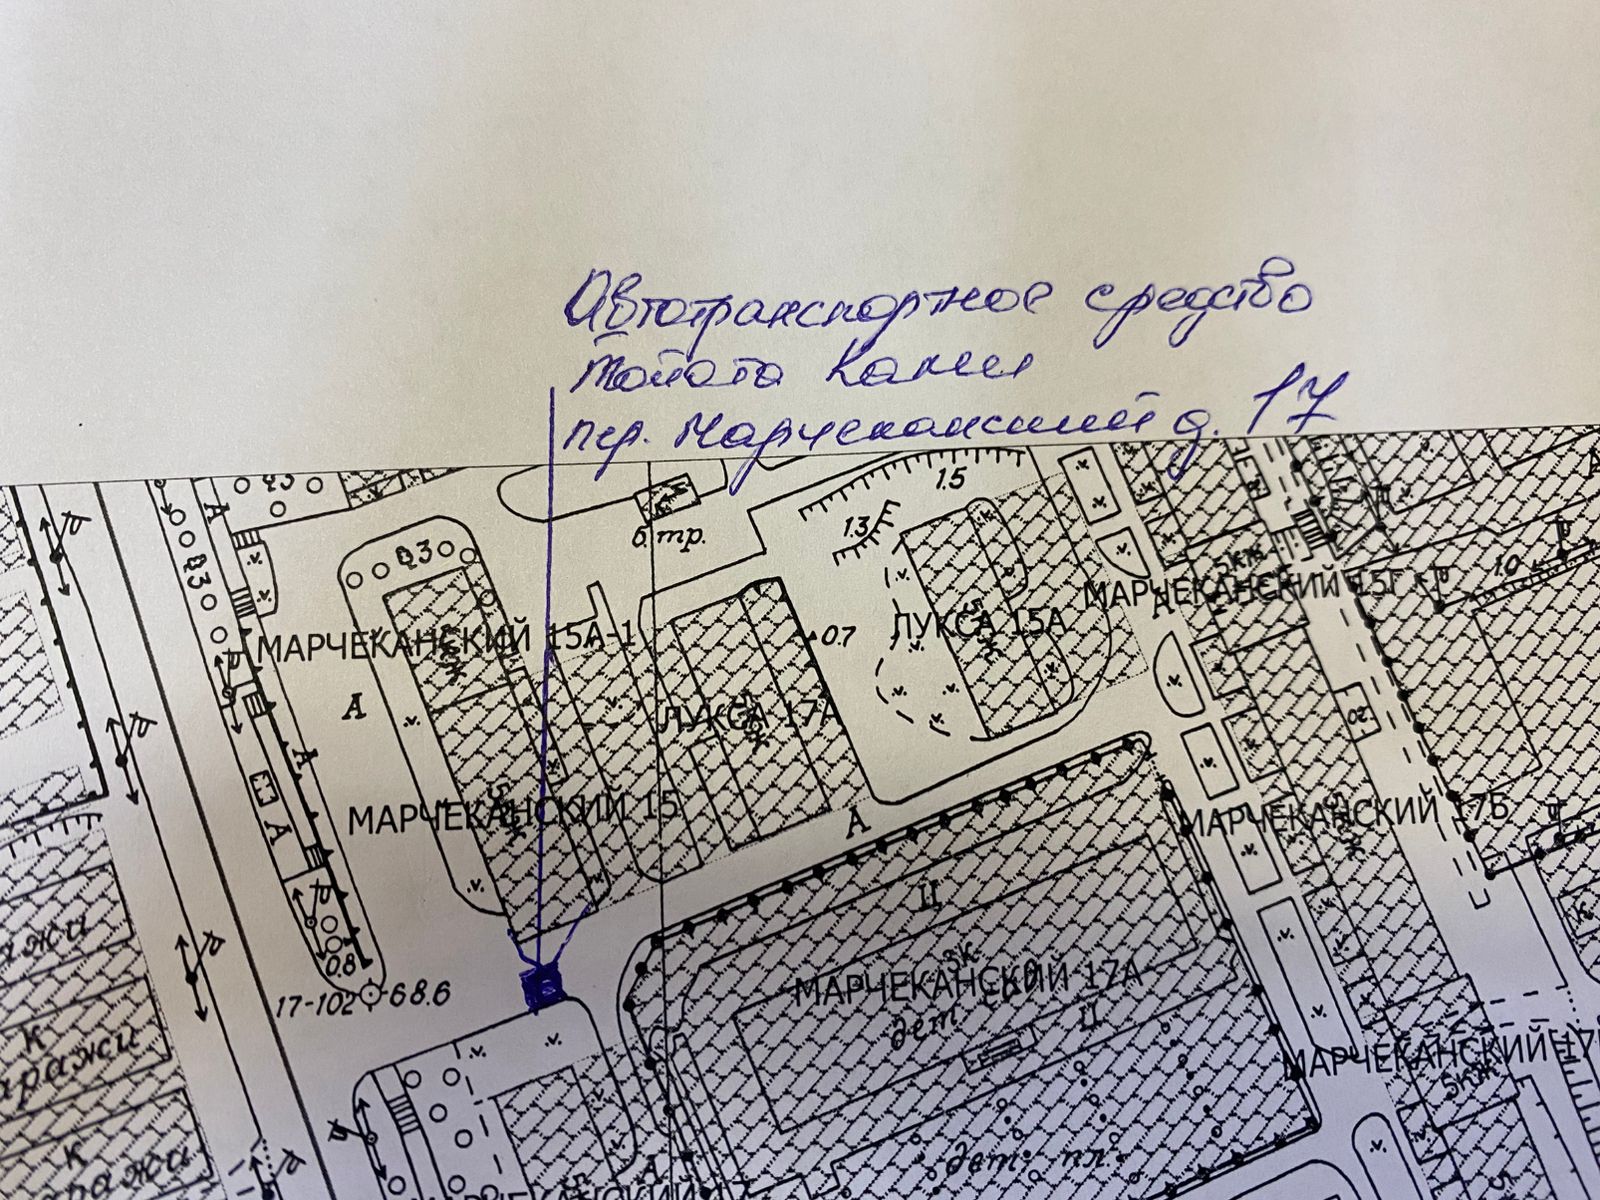 Автотранспортное средство
Тойота Камги
пер. Марчеканский д. 17
Q3
1.5
А
Q3
б. тр.
1.3
Q3
5кж
МАРЧЕКАНСКИЙ 15Г
1.0
МАРЧЕКАНСКИЙ 15А-1
0.7
ЛУКСА 15А
А
А
ЛУКСА 17А
20
А
МАРЧЕКАНСКИЙ 15
А
А
МАРЧЕКАНСКИЙ 17Б
Ц
0.8
17-102 68.6
5К
МАРЧЕКАНСКИЙ 17А
дет. сад
Ц
К
К
МАРЧЕКАНСКИЙ 17
5кж
К
дет. пл.
А